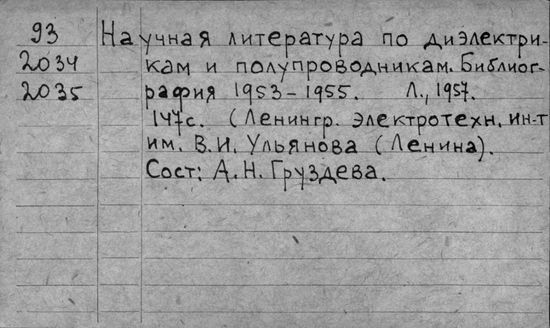 93 Научная литература по диэлектри-
2034 кам и полупроводникам. Библиог-
2035 рафия 1953-1955. Л., 1957.
147с. (Ленингр. электротехн. ин-т
им. В.И. Ульянова (Ленина).
Сост: А.Н. Груздева.